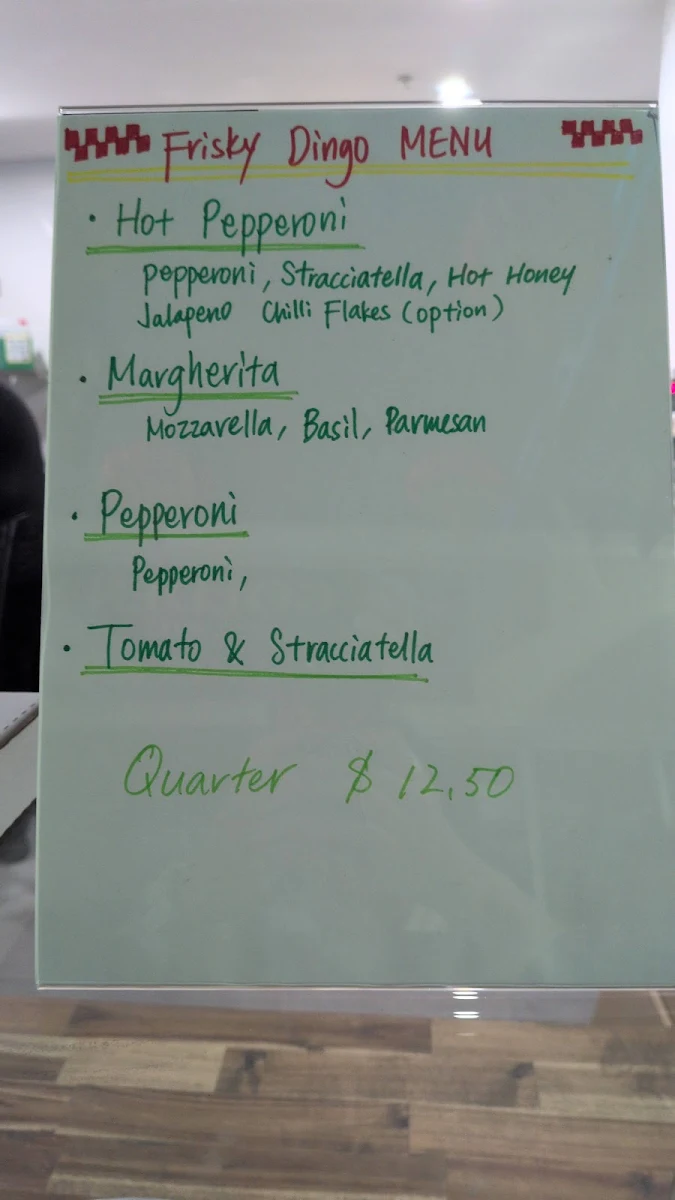 Frisky Dingo MENU
· Hot Pepperoni
Pepperoni, Stracciatella, Hot Honey
Jalapeno Chilli Flakes (option)
· Margherita
Mozzarella, Basil, Parmesan
· Pepperoni
Pepperoni,
· Tomato & Stracciatella
Quarter $12.50